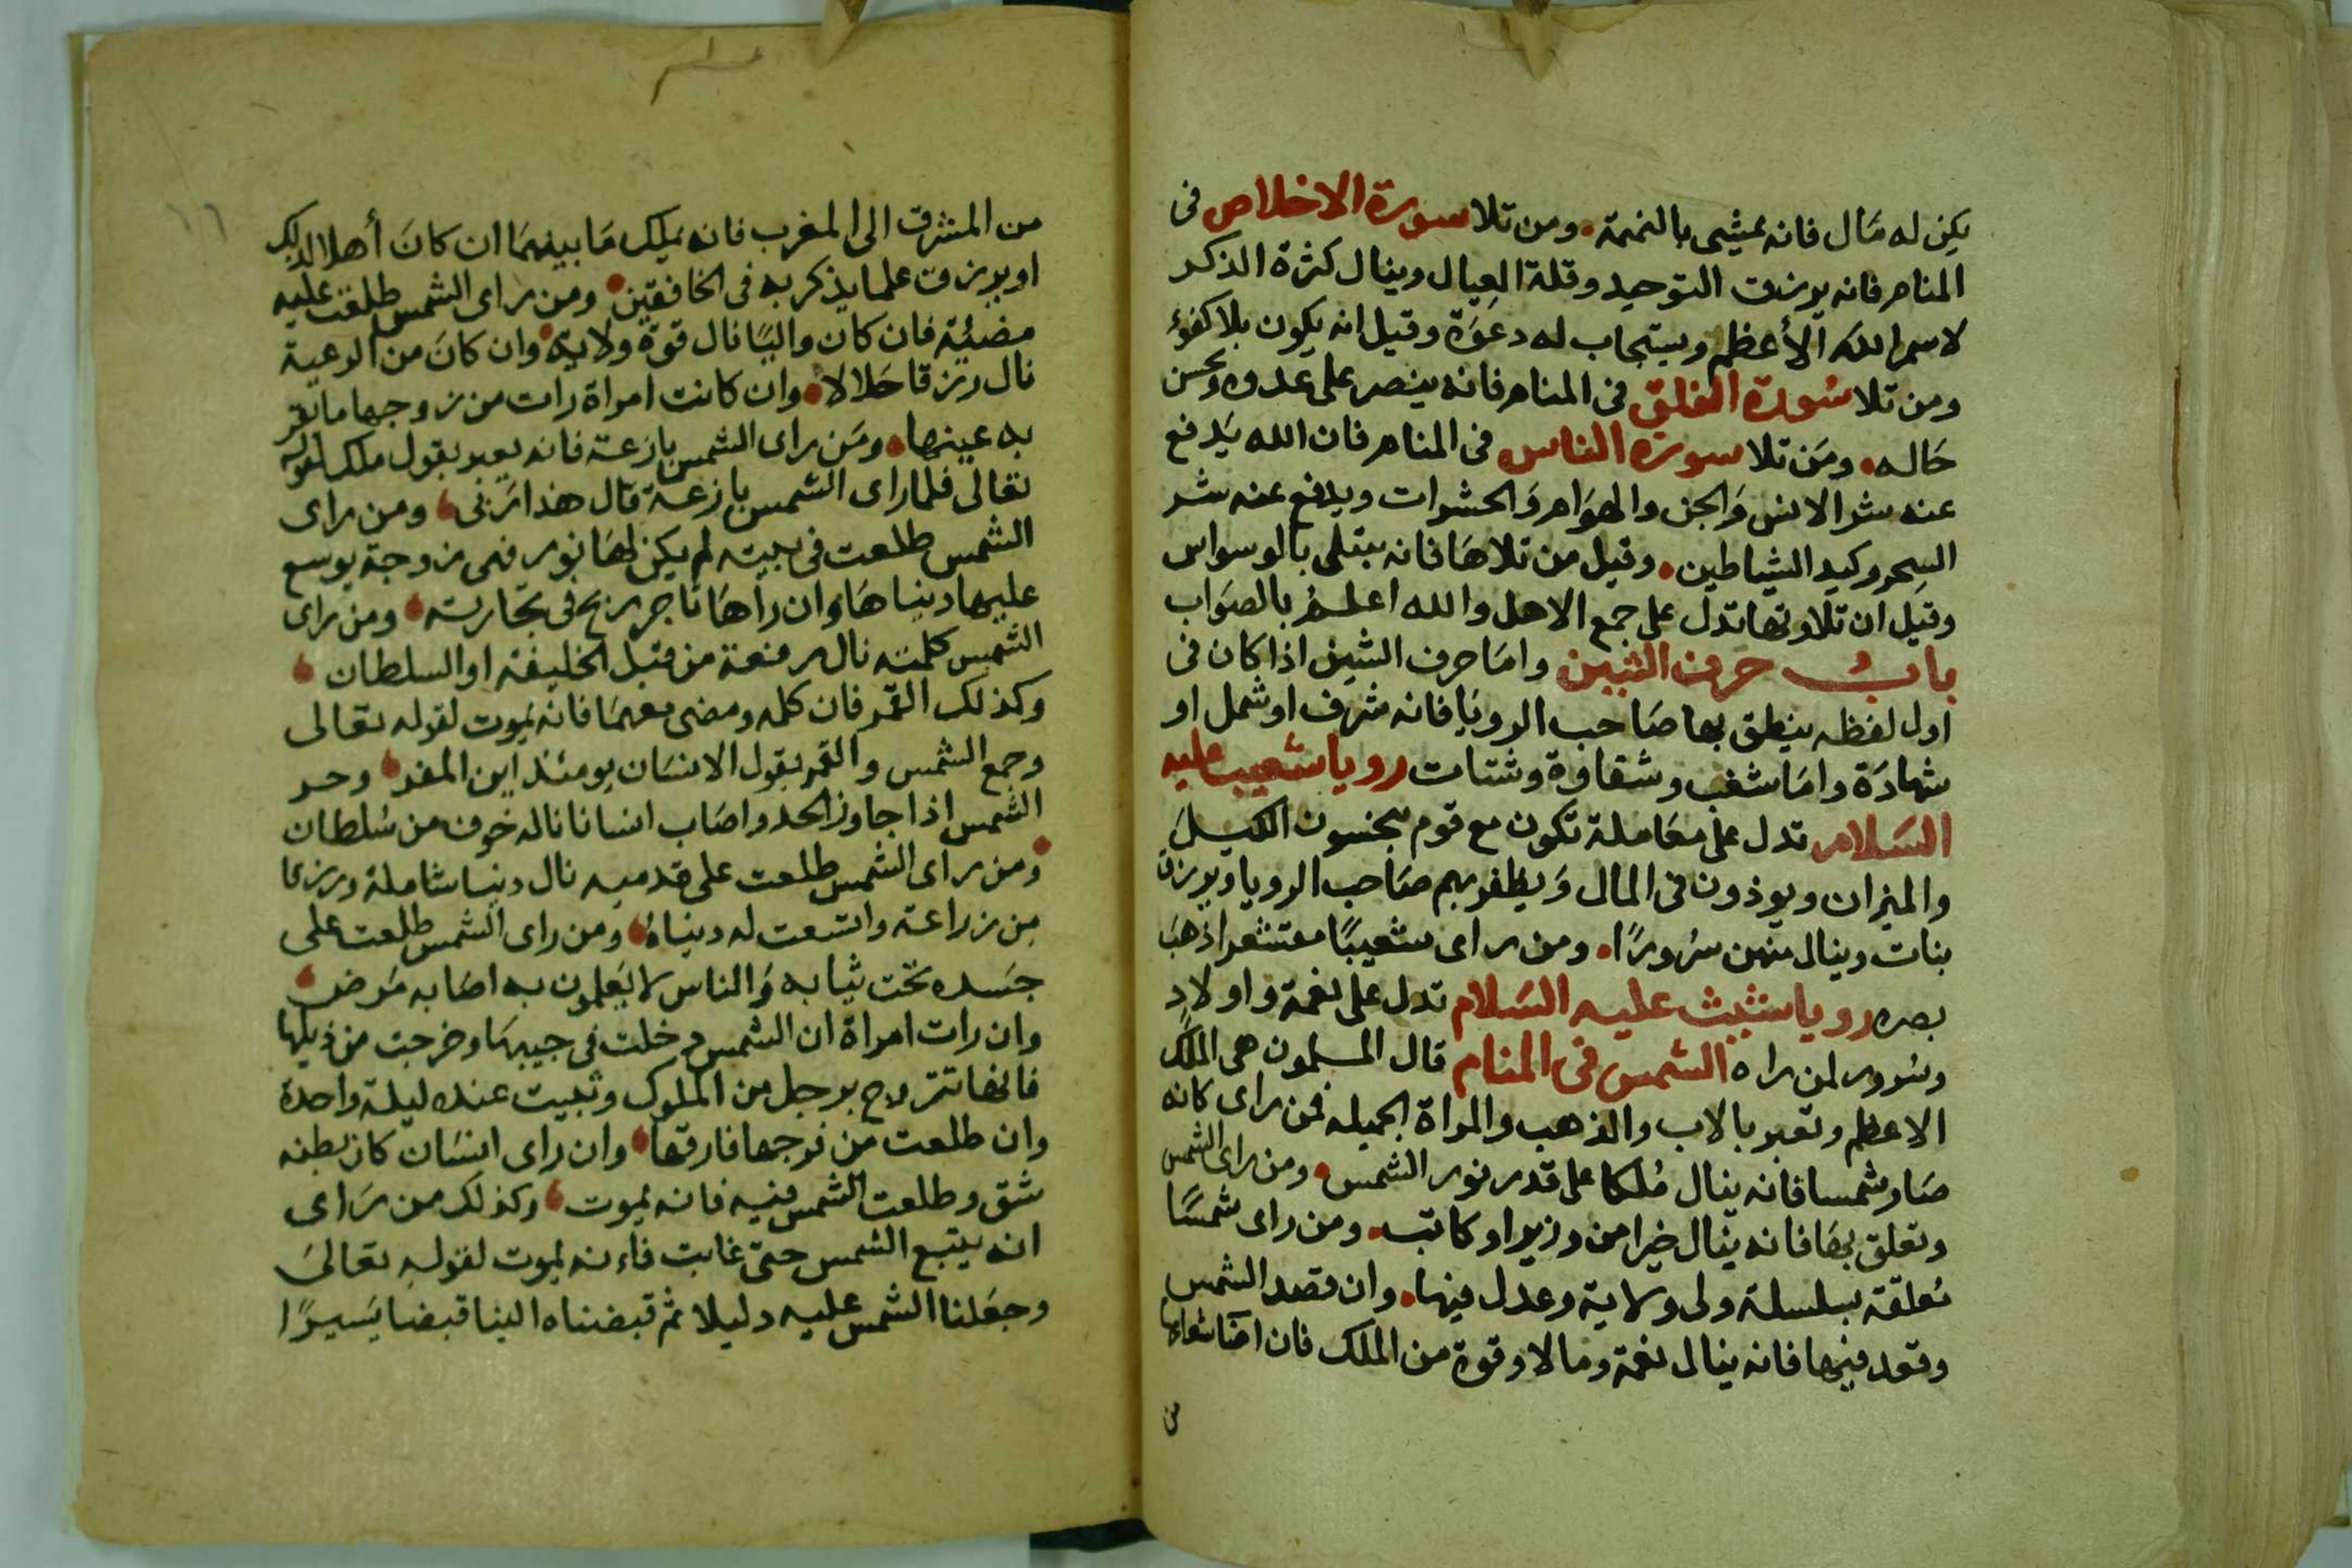 يكن له مَال فانه يمشى بالنميمة ومن تلا سورة الاخلاص فى
المنام فانه يرزق التوحيد وقلة العيال وينال كثرة الذكر
لاسم الله الأعظم ويستجاب له دعَوَة وقيل انه يكون بلا كفؤ
ومن تلا سُورة الفلق فى المنام فانه ينصر على عدوه ويحسن
حَاله ومَن تلا سورة الناس فى المنام فان الله يَدفع
عنه شر الانس وَالجن والهوَام وَالحشرات ويدفع عنه شر
السِحر وكيد الشياطين وقيل من تلاهَا فانه يبتلى بالوسواس
وقيل ان تلاوتها تدل على جمع الاهل والله اعلم بالصوَاب
بابُ حرف الشين وامَا حرف الشين اذا كان فى
اول لفظه ينطق بها صَاحب الرويَا فانه شرف او شمل او
شهادَة وامَا شغب وشقاوة وشتات رويا شعيب عليه
السَلام تدل على معَاملة تكون مع قوم يبخسون الكيلَ
والميزان ويوذون فى المال وَيظفر بهم صَاحب الرويا ويرزق
بنات وينال منهن سُرورًا ومن راى شعيبًا مقتشعرا ذهبَ
بصره رويا شيث عليه السَلام تدل على نعمة واولادِ
وسُرور لمن راه الشمس فى المنام قال المسلمون هى الملك
الاعظم وتعبر بالاب والذهب والمراة الجميله فمن راى كانه
صَار شمسا فانه ينال مُلكا على قدر نور الشمس ومن راى الشمس
وتعلق بهَا فانه ينال خيرا من وزير او كاتب ومن راى شمسًا
مُعلقة بسلسلة ولى ولاية وعدل فيها وان قصد الشمس
وقعد فيها فانه ينال نعمة ومالا وقوة من الملك فان اضَا شعاعها
من
١٦
من المشرق الى المغرب فانه يَملك مَا بينهمَا ان كانَ أهلا لذلك
او يرزق علما يذكر به فى الخافقين ومن راى الشمس طلعَت عليه
مضيئة فان كان واليًا نال قوة ولايته وان كانَ من الرعية
نال رزقا حَلالا وان كانت امراة رات من زوجها ما تقر
به عينها ومَن راى الشمس بازعة فانه يعبر بقول ملك لقوله
تعَالى فلما راى الشمس بازعة قال هذا رَبى ومن راى
الشمس طلعت فى بيته لم يكن لهَا نور فهى زوجة يوسع
عليها دينا هَا وان راهَا تاجر ربح فى تجارته ومن راى
الشمس كلمته نال منفعة من قبل الخليفة او السلطان
وكذلك القمر فان كلمه ومضى معهمَا فانه يَموت لقوله تعَالى
وجمع الشمس والقمر يقول الانسَان يومئذ اين المفر وحر
الشمس اذا جاوز الحد واصَاب انسانا ناله خوف من سُلطان
ومن راى الشمس طلعت على قدميه نال دينا شاملة ورزقا
من زراعة واتسعت له دينَاهُ ومن راى الشمس طلعت على
جسَده تحت ثيابه وَالناس لا يَعلمون به اصَابه مَرض
وان رات امراة ان الشمس دخلت فى جيبهَا وخرجت من ذيلها
فانها تتزوج برجل من الملوك وتبيت عنده ليلة واحدة
وان طلعت من فرجها فارقها وان راى انسَان كان بطنه
شق وطلعت الشمس فيه فانه يموت وكذلك من رَاى
انه يتبع الشمس حتى غابت فاءنه يموت لقوله تعالىَ
وجعَلنا الشمس عليه دليلا ثم قبضناه الينا قبضا يَسيرًا